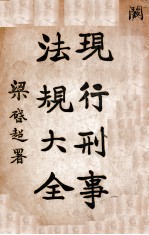 闕
現行刑事
法規大全
梁啓超署